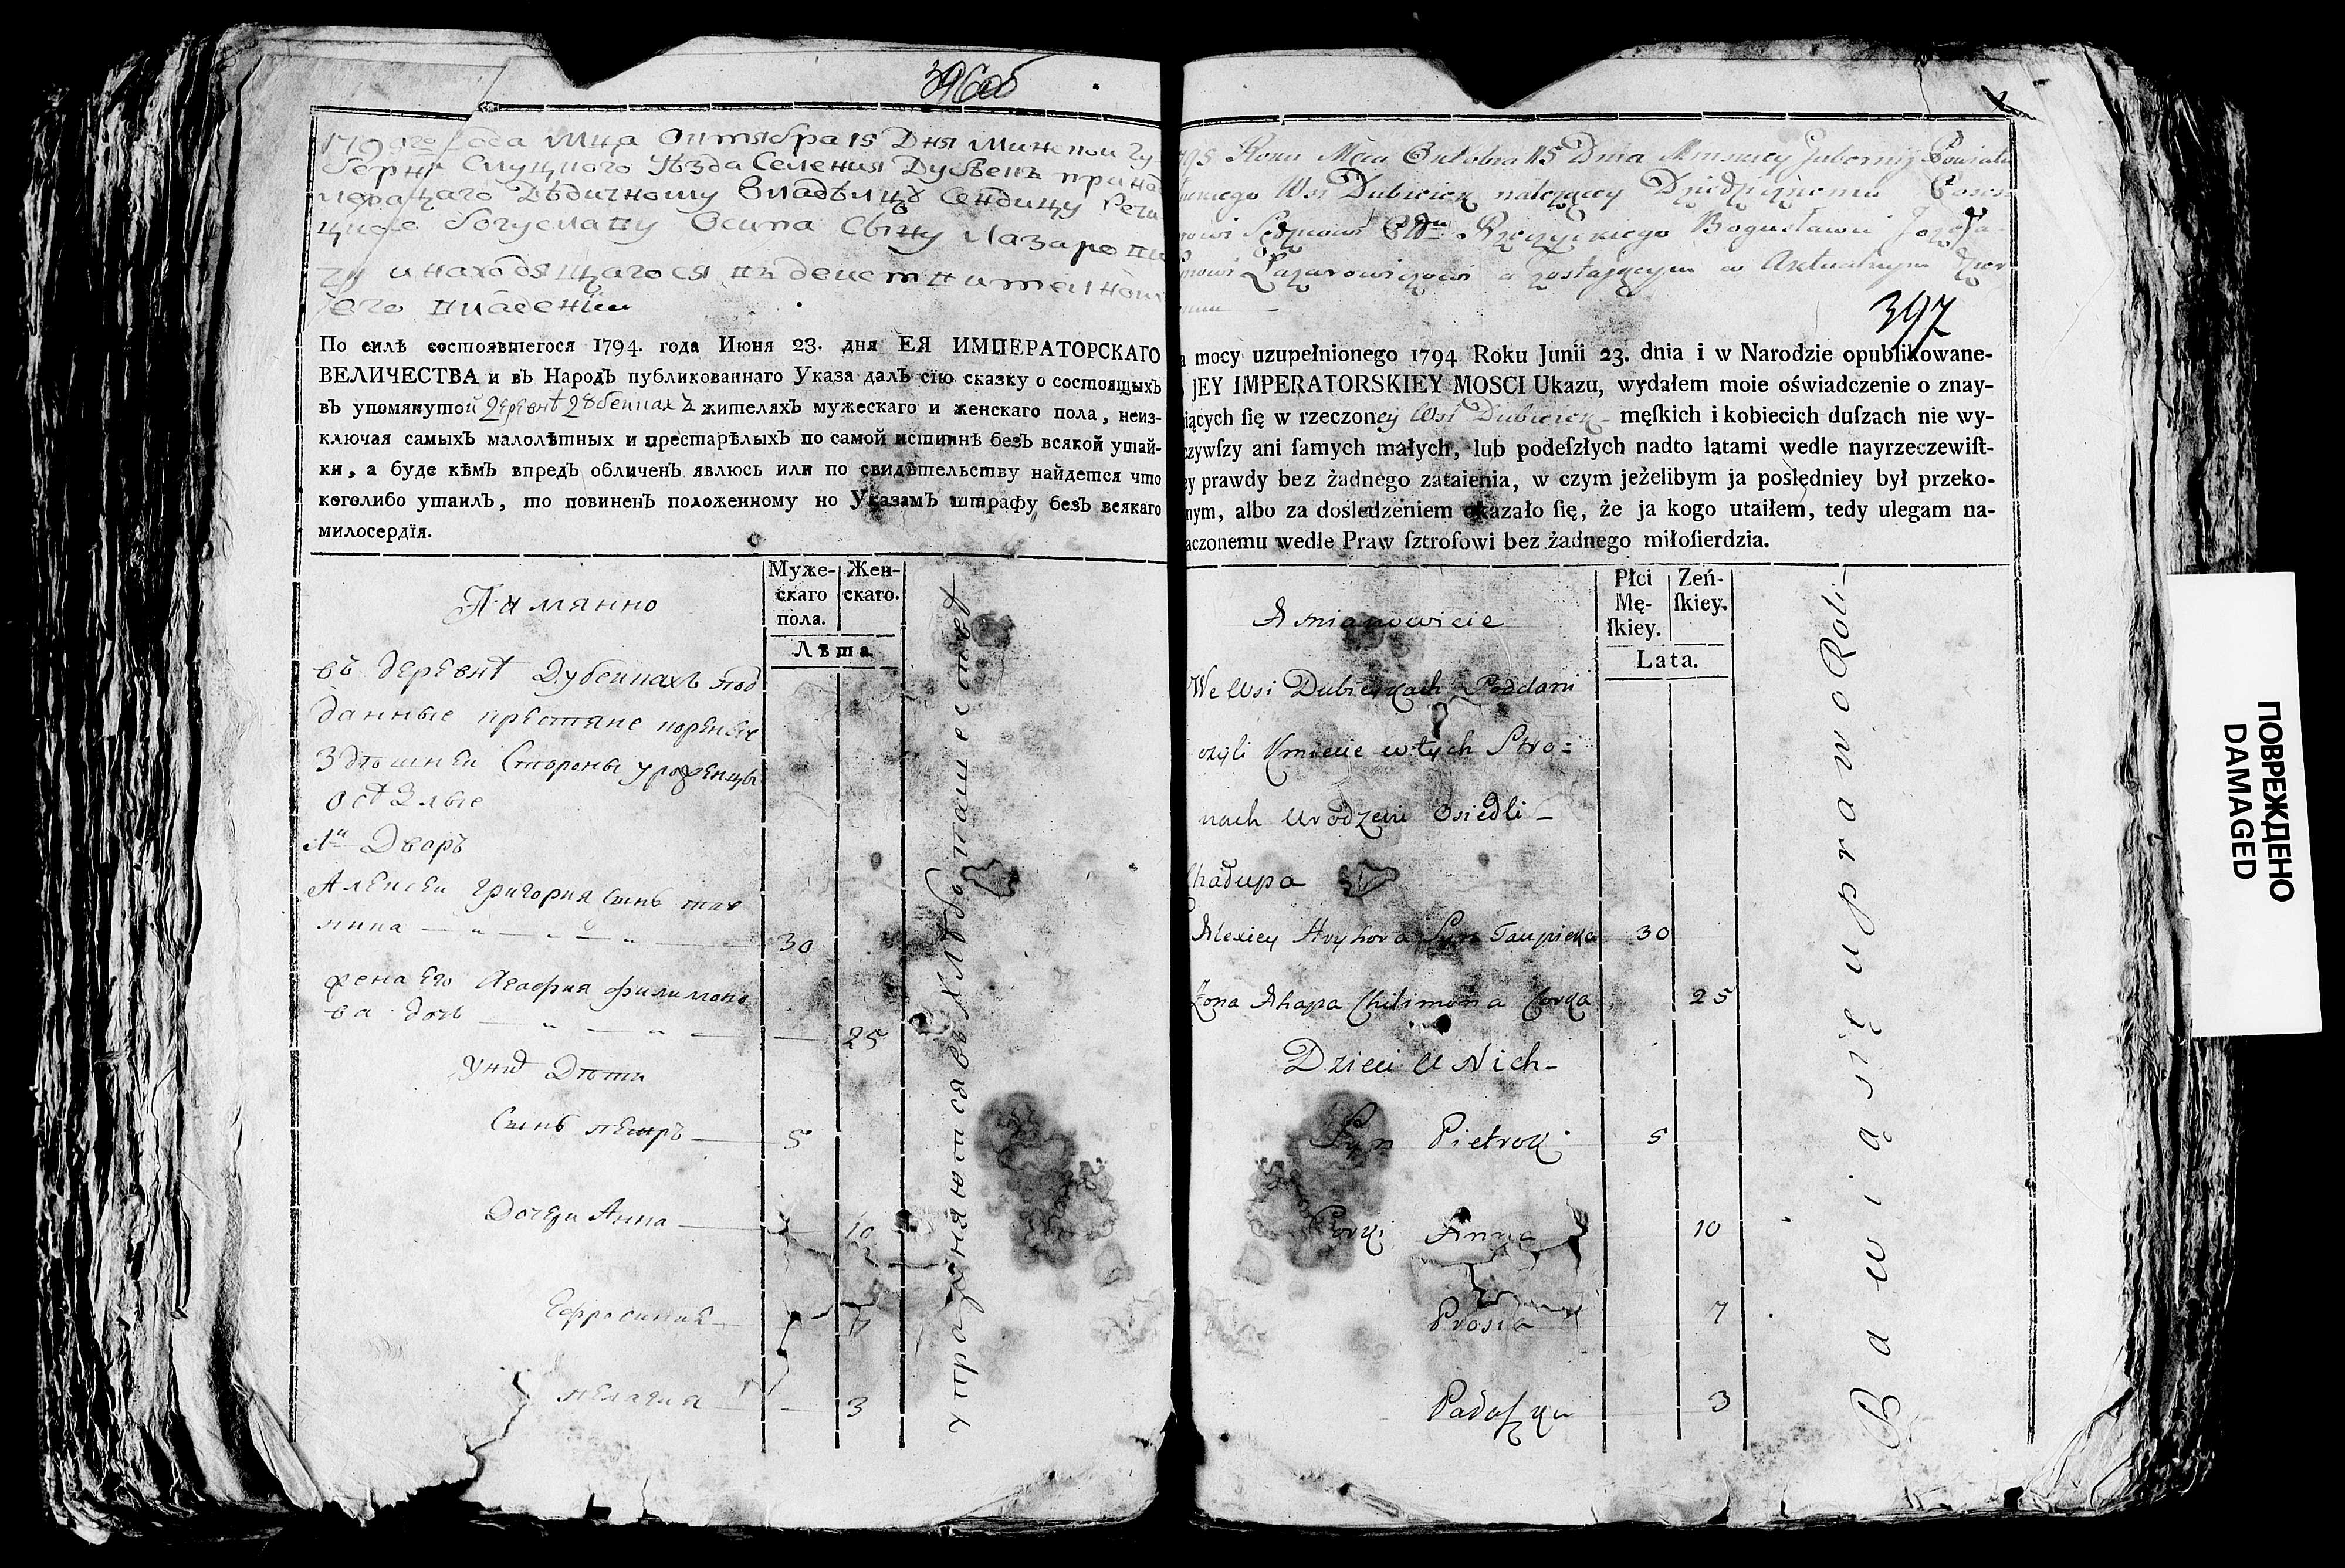 396об
1795го Года Мца Октября 15 Дня Минской Гу-
берни Слуцкого Уѣзда Селения Дубеек принад
лежащаго Дѣдичному Владѣлцу Сендищу Речи
цкого Богуславу Осипа Сыну Лазарови
чу и находящагося въ действителном
его владении
По силѣ состоявшегося 1794. года Июня 23. дня ЕЯ ИМПЕРАТОРСКАГО
ВЕЛИЧЕСТВА и въ Народѣ публикованнаго Указа далъ сїю сказку о состоящыхъ
въ упомянутой деревнѣ дубейках жителяхъ мужескаго и женскаго пола, неиз-
ключая самыхъ малолѣтныхъ и престарѣлыхъ по самой истиннѣ безъ всякой утай-
ки, а буде кѣмъ впредъ обличенъ явлюсь или по свидѣтельству найдется что
кого либо утаилъ, то повиненъ положенному по Указамъ штрафу безъ всякаго
милосердїя.
А имянно
Муже-
скаго
пола.
Жен-
скаго.
Лѣта.
въ деревнѣ Дубейкахъ под
данные крестяне коренные
Здѣшней Стороны уроженцы
осѣдлые
1й Дворъ
Алексей григория сынъ тав
пика 30
жена Его Агафия филимоно
ва дочь 25
У нихъ Дѣти
Сынъ петръ 5
Дочери Анна 10
Ефросиния 7
пелагия 3
упражняются въ хлѣбопашествѣ
397
1795 Roku Mca Oktobra 15 Dnia Minskiey Gubernij Powiatu
Słuckiego Wsi Dubieiek należącey Dziedzicznemu Posses-
sorowi Rzeczyckiego Bogusławu Jozefa
Synowi Łazarowiczowi a zostającym w Aktualnym Dzier
żeniu
a mocy uzupełnionego 1794 Roku Junii 23. dnia i w Narodzie opublikowane-
JEY IMPERATORSKIEY MOSCI Ukazu, wydałem moie oświadczenie o znay-
iących ſię w rzeczoney Wsi Dubieiek męſkich i kobiecich duſzach nie wy-
czywſzy ani ſamych małych, lub podeſzłych nadto latami wedle nayrzeczewiſt-
ey prawdy bez żadnego zataienia, w czym jeżelibym ja posledniey był przeko-
nym, albo za dosledzeniem okazało ſię, że ja kogo utaiłem, tedy ulegam na-
aczonemu wedle Praw ſztrofowi bez żadnego miłoſierdzia.
A mianowicie
Płci
Mę-
ſkiey.
Zeń-
ſkiey.
Lata.
We Wsi Dubieykach Poddani
czyli Kmiecie w tych Stro=
nach Urodzeni Osiedli
Chałupa
Alexiey Hryhora Syn Taupieka 30
Żona Ahapa Chilimona Corka 25
Dzieci U Nich
Syn Pietrok 5
Corki Anna 10
Prosia 7
Padoſzka 3
Bawią się uprawą Roli
ПОВРЕЖДЕНО
DAMAGED